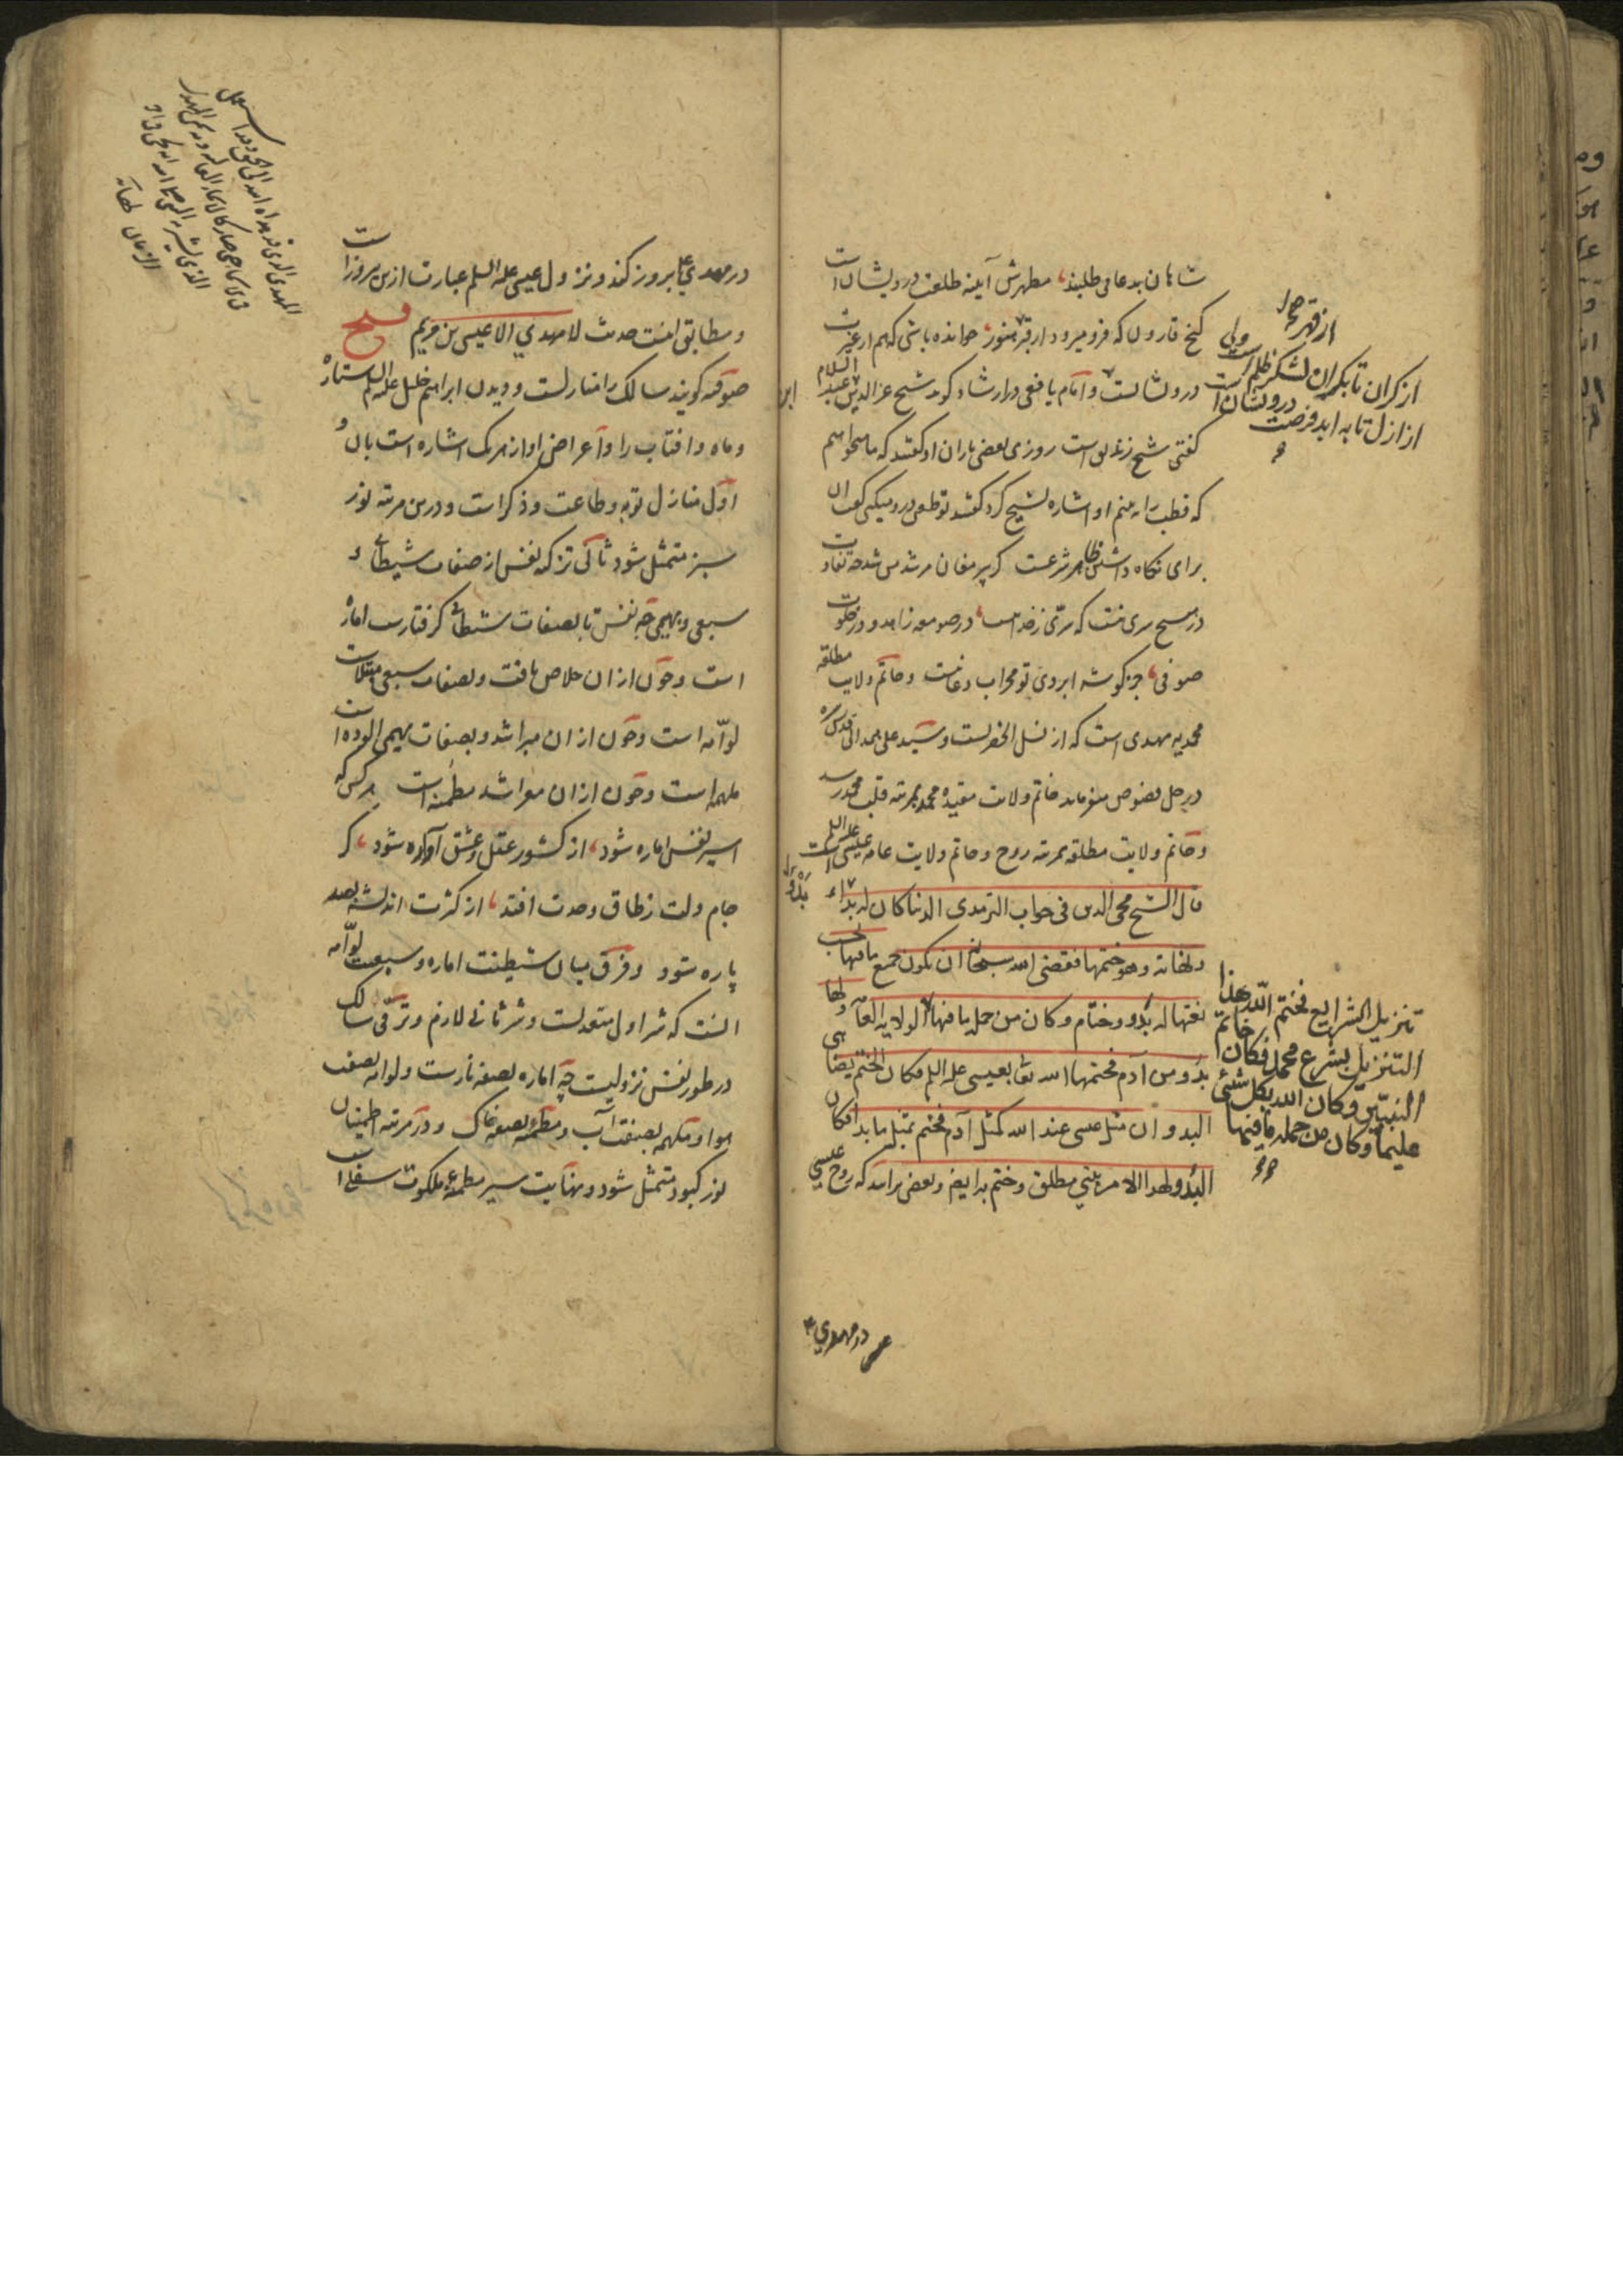 شاهان بدعا می طلبند مظهرش آینه طلعت درویشان است
گنج قارون که فرو میرود از قعر هنوز خوانده باشی که هم از غیرت
درویشانست و امام یافعی در ارشاد گوید شیخ عزالدین عبد السلام
گفتی شیخ زندیق است روزی بعضی یاران او گفتند که ما میخواهیم
که قطب را به بینیم او اشاره بشیخ کرد گفتند تو طعن درو میکنی گفت آن
برای نگاه داشتن ظاهر شرعست گر پیر مغان مرشد من شد چه تفاوت
در هیچ سری نیست که سری ز خدا نیست در صومعه زاهد و در خلوت
صوفی جز گوشه ابروی تو محراب دعا نیست و خاتم ولایت مطلقه
محمدیه مهدی است که از نسل آنحضرتست و سید علی همدانی قدس سره
در حل فصوص میفرماید خاتم ولایت مقیده محمدیه بمرتبه قلب محمد رسد
و خاتم ولایت مطلقه بمرتبه روح و خاتم ولایت عامه عیسی است علیه السلم
قال الشیخ محی الدین فی جواب الترمدی الدنیا کان لها بداء
ونهایة وهو ختمها فقضی الله سبحانه ان یکون جمیع ما فیها بحسب
نعتها له بدو وختام وکان من جملة ما فیها الولایة العامة ولها
بدو من آدم فختمها الله تعا بعیسی علیه السلم فکان الختم یضاهی
البدو ان مثل عیسی عند الله کمثل آدم فختم بمثل ما بدا فکان
البدو لهذا الامر بنبی مطلق وختم به ایضا وبعضی برانند که روح عیسی
از کران تا بکران لشکر ظلم است ولی
از ازل تا به ابد فرصت درویشان است
تنزیل الشرایع فختم الله هذا
التنزیل بشرع محمد فکان خاتم
النبیین وکان الله بکل شیئ
علیما وکان من جملة ما فیها
در مهدی
در مهدی ع بروز کند و نزول عیسی علیه السلم عبارت ازین بروز است
و مطابق اینست حدیث لا مهدی الا عیسی بن مریم فتح
صوفیه گویند سالک را منازلست و دیدن ابراهیم خلیل علیه السلم ستاره
و ماه و افتاب را و اعراض او از هر یک اشاره است بآن و
اول منازل توبه و طاعت و ذکر است و درین مرتبه نور
سبز متمثل شود ثانی تزکیه نفس از صفات شیطانی و
سبعی و بهیمی چه نفس تا بصفات شیطانی گرفتارست اماره
است و چون ازان خلاص یافت و بصفات سبعی مبتلاست
لوامه است و چون ازان مبرا شد و بصفات بهیمی الوده است
ملهمه است و چون ازان معرا شد مطمئنه است هر کس که
اسیر نفس اماره شود از کشور عقل و عشق آواره شود گر
جام دلت ز طاق وحدت افتد از کثرت اندیشه بصد
پاره شود و فرق میان شیطنت اماره و سبعیت لوامه
آنست که شر اول متعدیست و شر ثانی لازم و ترقی سالک
در طور نفس نزولیست چه اماره بصفة نارست و لوامه بصفت
هوا و ملهمه بصفت آب و مطمئنه بصفة خاک و در مرتبه اطمینان
نور کبود متمثل شود و نهایت سیر مطمئنه ملکوت سفلی است